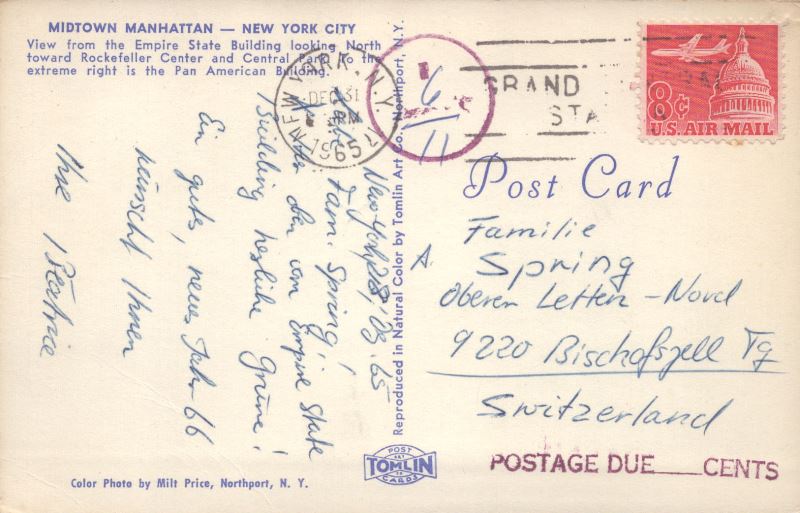 MIDTOWN MANHATTAN — NEW YORK CITY
View from the Empire State Building looking North
toward Rockefeller Center and Central Park. To the
extreme right is the Pan American Building.
New York, 28.
65
Fam. Spring!
von Empire State
Building Grüsse!
Ein gutes, neues Jahr 66
wünscht Ihnen
Ihre Beatrice
Color Photo by Milt Price, Northport, N. Y.
Reproduced in Natural Color by Tomlin Art Co., Northport, N. Y.
POST
ART
TOMLIN
CARDS
NEW YORK, N.Y.
DEC 31
PM
1965
6
11
GRAND
STA
8¢
U.S. AIR MAIL
Post Card
Familie
A. Spring
Oberer Letten-
9220 Bischofszell Tg
Switzerland
POSTAGE DUE____CENTS